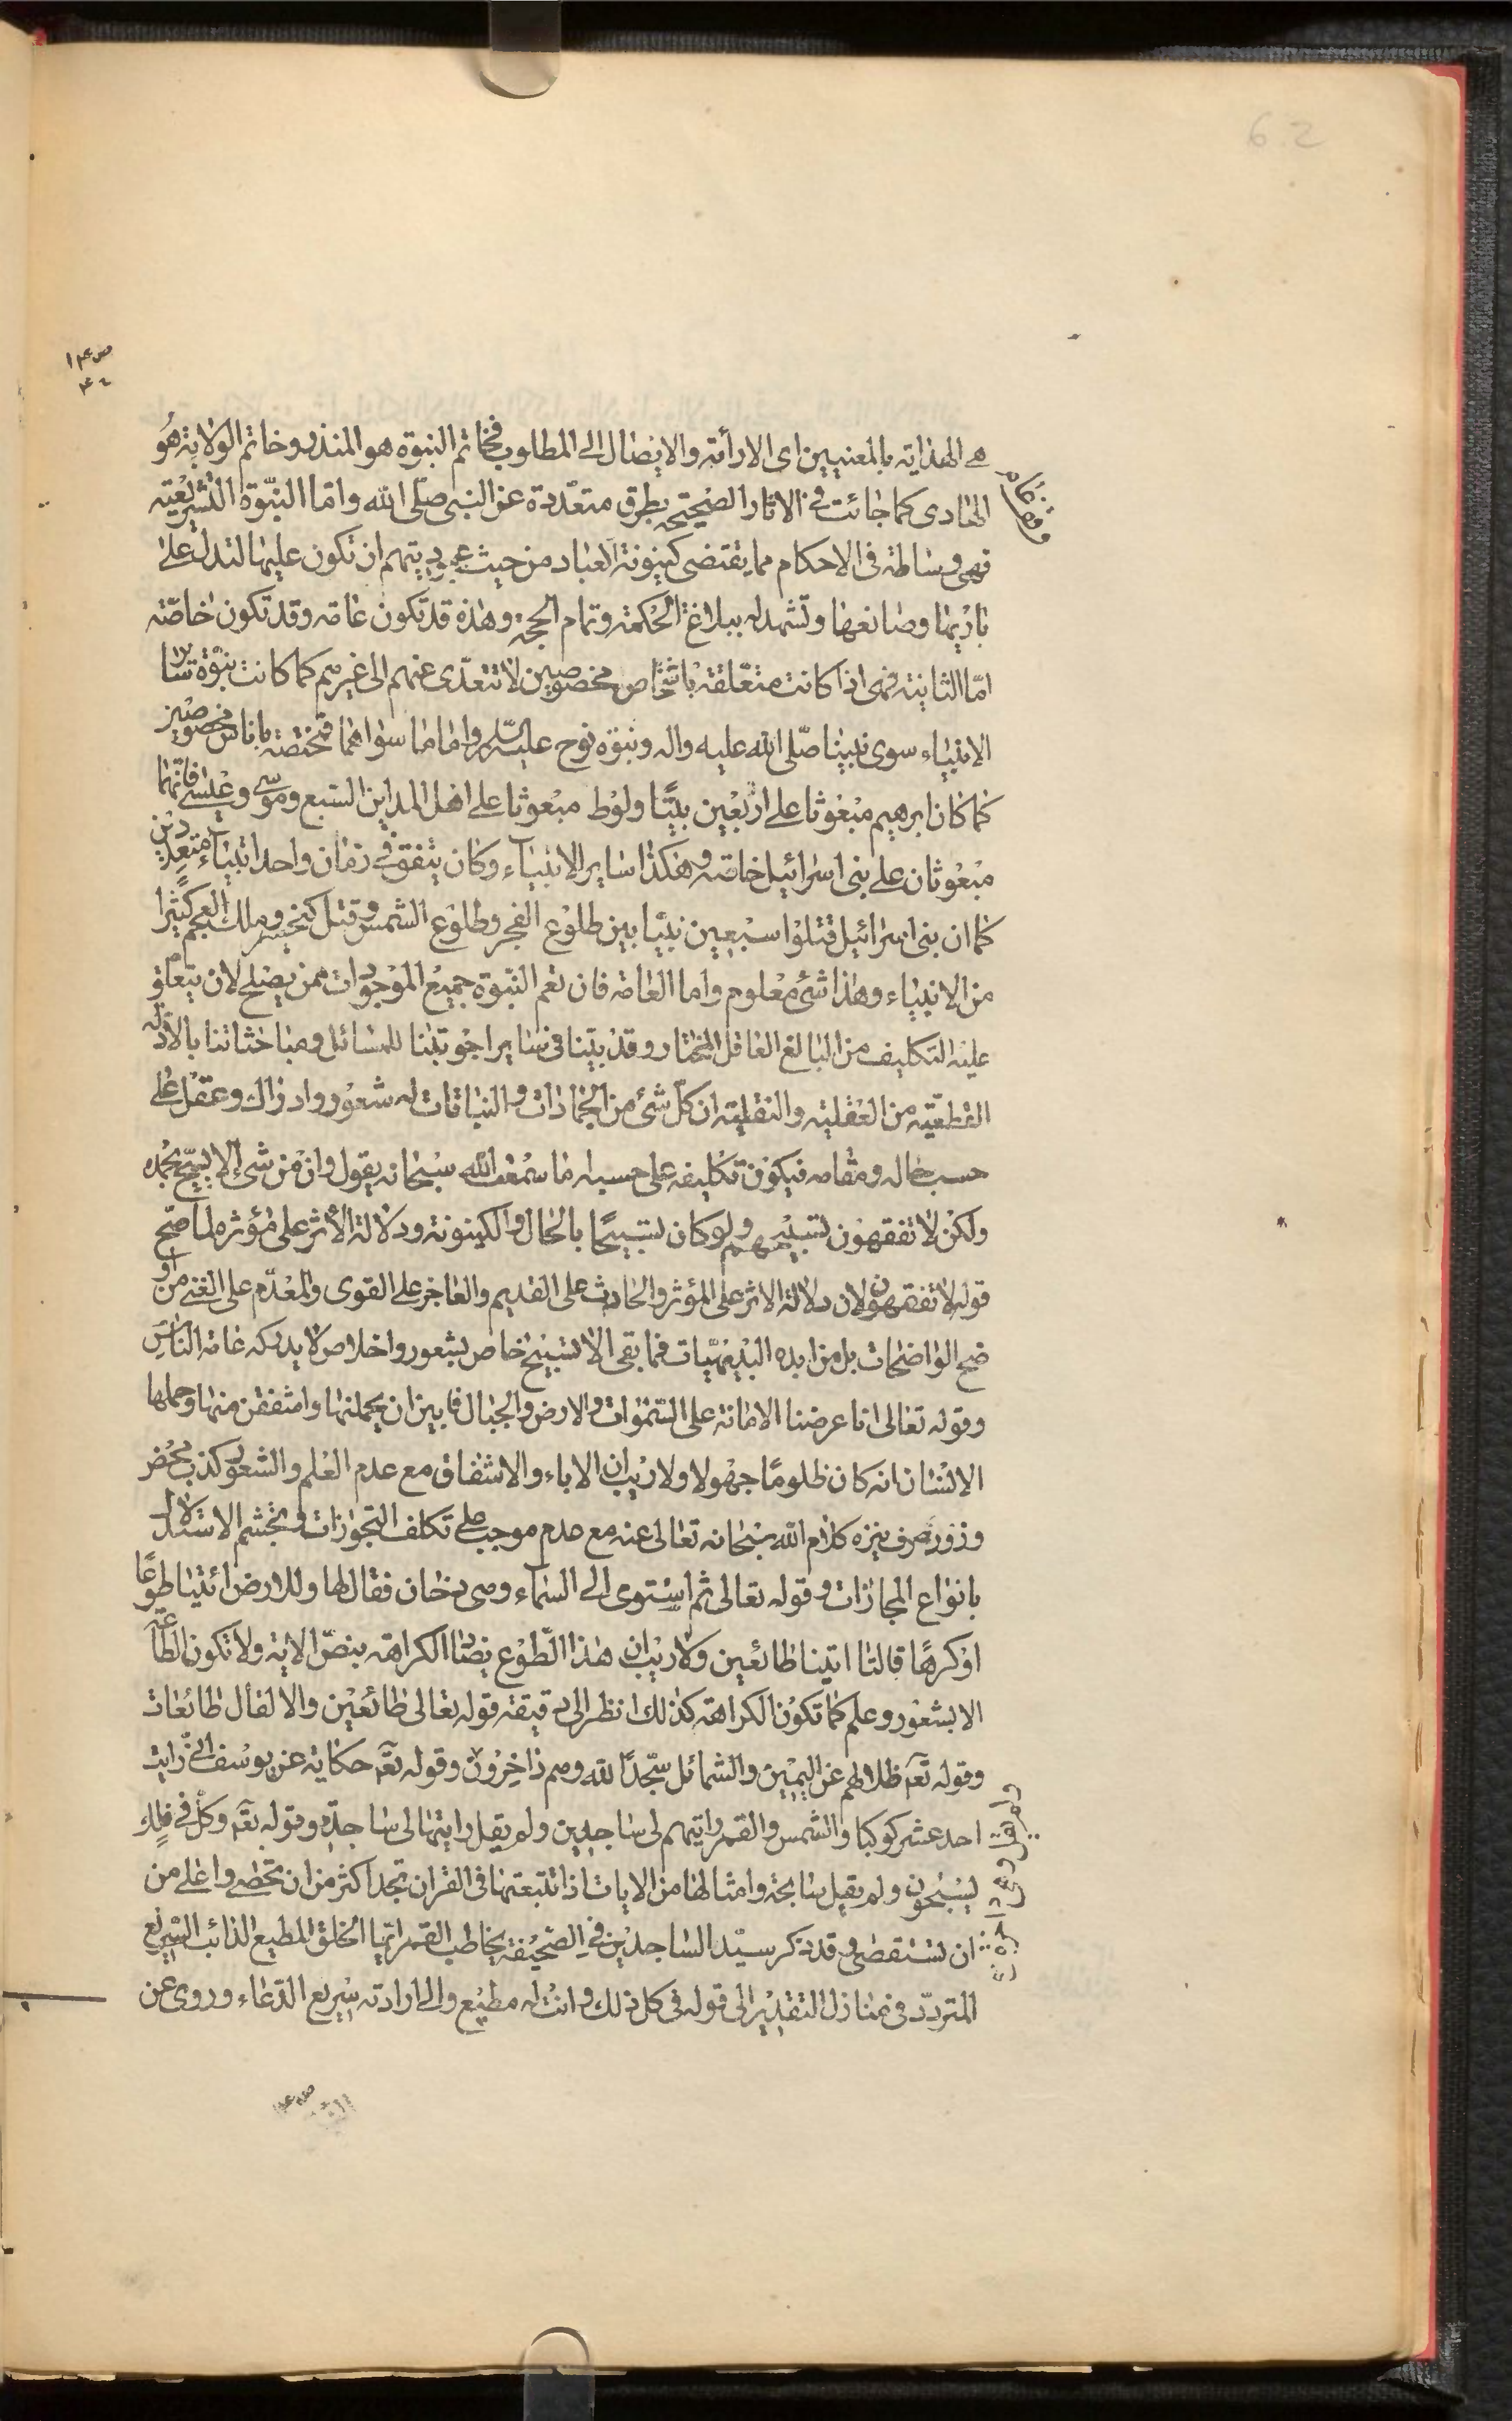 هى الهداية بالمعنيين اى الاراءة والايصال الى المطلوب فخاتم النبوة هو المنذر وخاتم الولاية هو
الهادى كما جائت فى الاثار الصحيحة بطرق متعددة عن النبى صلى الله واما النبوة التشريعية
فهى وساطة فى الاحكام مما يقتضى كينونة العباد من حيث عبوديتهم ان تكون عليها لتدل على
بارئها وصانعها وتشهد له ببلاغ الحكمة وتمام الحجة وهذه قد تكون عامة وقد تكون خاصة
اما الثانية فهى اذا كانت متعلقة باشخاص مخصوصين لا تتعدى عنهم الى غيرهم كما كانت نبوة سائر
الانبياء سوى نبينا صلى الله عليه واله ونبوة نوح عليه السلم واما ما سواهما فمختصة باناس مخصوصين
كما كان ابرهيم مبعوثا على اربعين بيتا ولوط مبعوثا على اهل المداين السبع وموسى وعيسى فانهما
مبعوثان على بنى اسرائيل خاصة وهكذا ساير الانبياء وكان يتفق فى زمان واحد انبياء متعددين
كما ان بنى اسرائيل قتلوا سبعين نبيا بين طلوع الفجر وطلوع الشمس وقتل كيخسرو ملك العجم كثيرا
من الانبياء وهذا شئ معلوم واما العامة فان تعم النبوة جميع الموجودات ممن يصلح لان يتعلق
عليه التكليف من البالغ العاقل المختار وقد بينا فى ساير اجوبتنا للمسائل ومباحثاتنا بالادلة
القطعية من العقلية والنقلية ان كل شئ من الجمادات والنباتات له شعور وادراك وعقل على
حسب حاله ومقامه فيكون تكليفه على حسبه اما سمعت الله سبحانه يقول وان من شئ الا يسبح بحمده
ولكن لا تفقهون تسبيحهم ولو كان تسبيحا بالحال والكينونة ودلالة الاثر على مؤثره لما صح
قوله لا تفقهون لان دلالة الاثر على المؤثر والحادث على القديم والعاجز على القوى والمعدم على الغنى من او
ضح الواضحات بل من ابده البديهيات فما بقى الا تسبيح خاص بشعور واخلاص لا يدركه عامة الناس
وقوله تعالى انا عرضنا الامانة على السموات والارض والجبال فابين ان يحملنها واشفقن منها وحملها
الانسان انه كان ظلوما جهولا ولا ريب ان الاباء والاشفاق مع عدم العلم والشعور كذب محض
وزور صرف ينزه كلام الله سبحانه تعالى عنه مع عدم موجب على تكلف التجوزات وتجشم الاستدلال
بانواع المجازات وقوله تعالى ثم استوى الى السماء وهى دخان فقال لها وللارض ائتيا طوعا
او كرها قالتا اتينا طائعين ولا ريب ان هذا الطوع يضاد الكراهة بنص الاية ولا تكون الطاعة
الا بشعور وعلم كما تكون الكراهة كذلك انظر الى دقيقة قوله تعالى طائعين والا لقال طائعات
وقوله تعم ظلالهم عن اليمين والشمائل سجدا لله وهم داخرون وقوله تعم حكاية عن يوسف انى رايت
احد عشر كوكبا والشمس والقمر رايتهم لى ساجدين ولم يقل رايتها لى ساجدة وقوله تعم وكل فى فلك
يسبحون ولم يقل سابحة وامثالها من الايات اذا تتبعتها فى القران تجد اكثر من ان تحصى واعلى من
ان تستقصى وقد ذكر سيد الساجدين فى الصحيفة يخاطب القمر ايها الخلق المطيع الدائب السريع
المتردد فى منازل التقدير الى قوله فى كل ذلك وانت له مطيع والى ارادته سريع الدعاء وروى عن